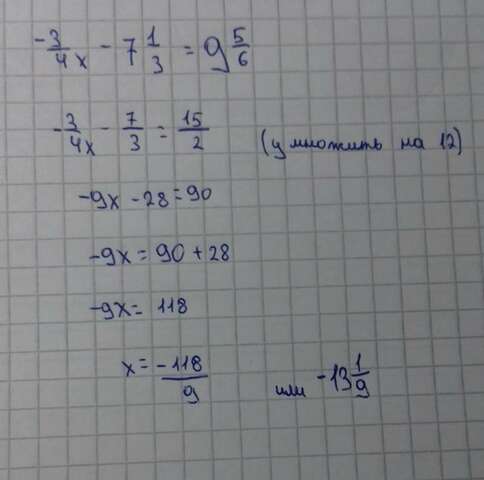 -3/4x - 7 1/3 = 9 5/6
-3/4x - 7/3 = 15/2 (умножить на 12)
-9x - 28 = 90
-9x = 90 + 28
-9x = 118
x = -118/9 или -13 1/9